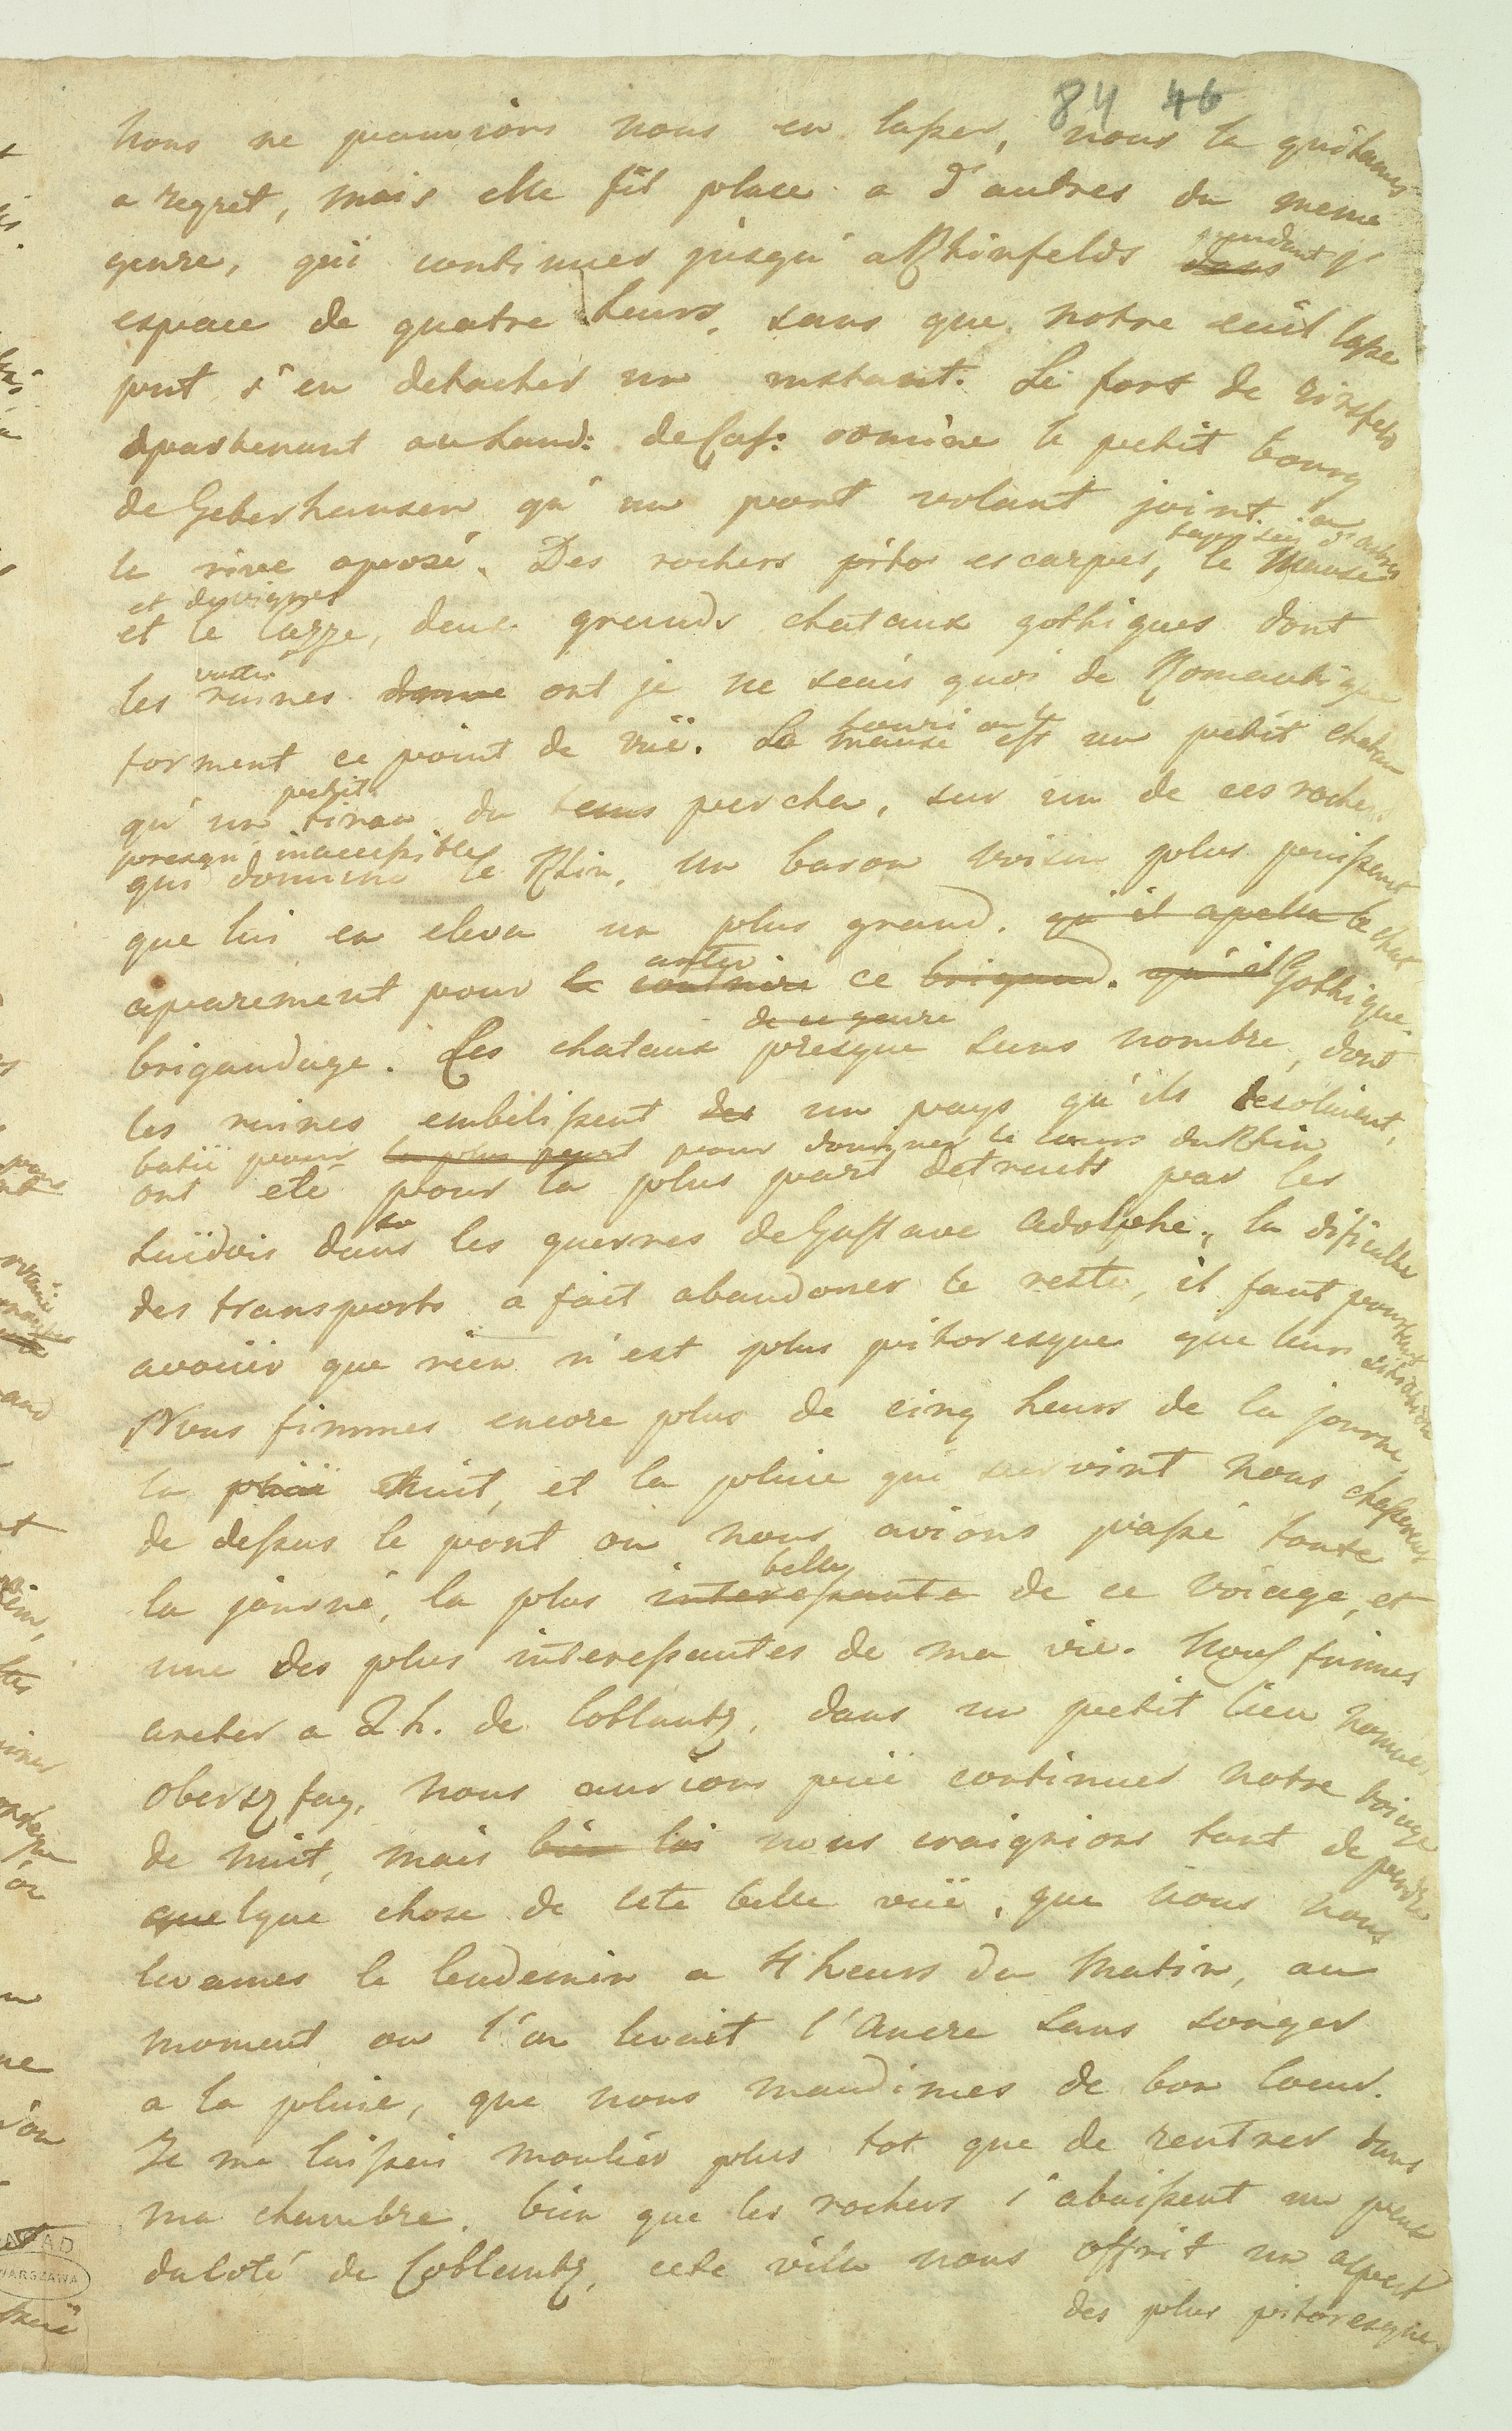 84 46
nous ne pouvions nous en lasser, nous la quitames
a regret, mais elle fit place a d'autres du meme
genre, qui continues jusqu' a Rhinfelds pendant l'
espace de quatre heurs, sans que notre euil lassé
put s'en detacher un instant. Le fort de rinsfels
apartenant au Land: de Cass: domine le petit bourg
de Geberhausen qu' un pont volant joint a
la rive aposé. Des rochers pito: escarpés, d'arbres
et de vignes
le Mause
et le Cazze, deux grands chataux gothiques dont
les vastes ruines donne ont je ne scais quoi de Romantique
forment ce point de vüe. La souri ou le mause est un petit chatau
qu' un petit tiran du tems percha, sur un de ces rochers
presqu' inaccessible
qui domine le Rhin. un baron voisin plus puissant
que lui en eleva un plus grand. qu'il apella le chat
aparement pour le contraire ce brigand. qu'il Gothique.
brigandage. Ces chataux de ce genre presque sans nombre, dont
les ruines embelissent des un pays qu'ils desoloient,
batii pour la plus part pour dominer le cours du Rhin
ont eté pour la plus part detruits par les
suidois dans les guerres de Gustave Adolphe, la dificulte
des transports a fait abandoner le reste, il faut pourtant
avoüer que rien n'est plus pitoresque que leur situation
Nous fimmes encore plus de cinq heurs de la journe,
la pluie Nuit, et la pluie qui survint nous chasserent
de dessus le pont ou nous avions passé toute
la journé, la plus interessante belle de ce voiage, et
une des plus interessantes de ma vie. Nous fumes
areter a 2 h. de Coblantz, dans un petit lieu nommer
nous aurions puë continuer notre voiage
de nuit, mais nous craignions tant de perdre
quelque chose de cete belle vuë, que nous nous
levames le lendemin a 4 heurs du Matin, au
moment ou l'on levait l'Ancre sans songer
a la pluie, que nous maudimes de bon Coeur.
Je me laissai moulier plus tot que de rentrer dans
ma chambre. bien que les rochers s'abaissent un peux
du coté de Coblentz, cete ville nous offrit un aspect
des plus pitoresque.